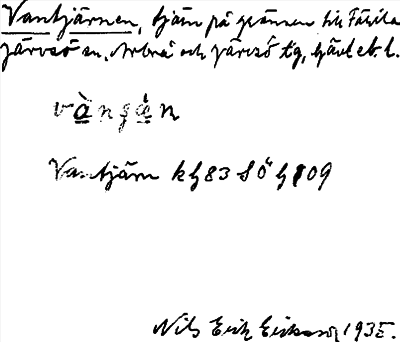 Vantjärnen, tjärn på gränsen till Färila
Järvsö sn, Arbrå och Järvsö tg, Gävleb. l.
vàngæ̀n
Vantjärn kg 83 SÖ g 109
Nils Erik Eriksson 1935.